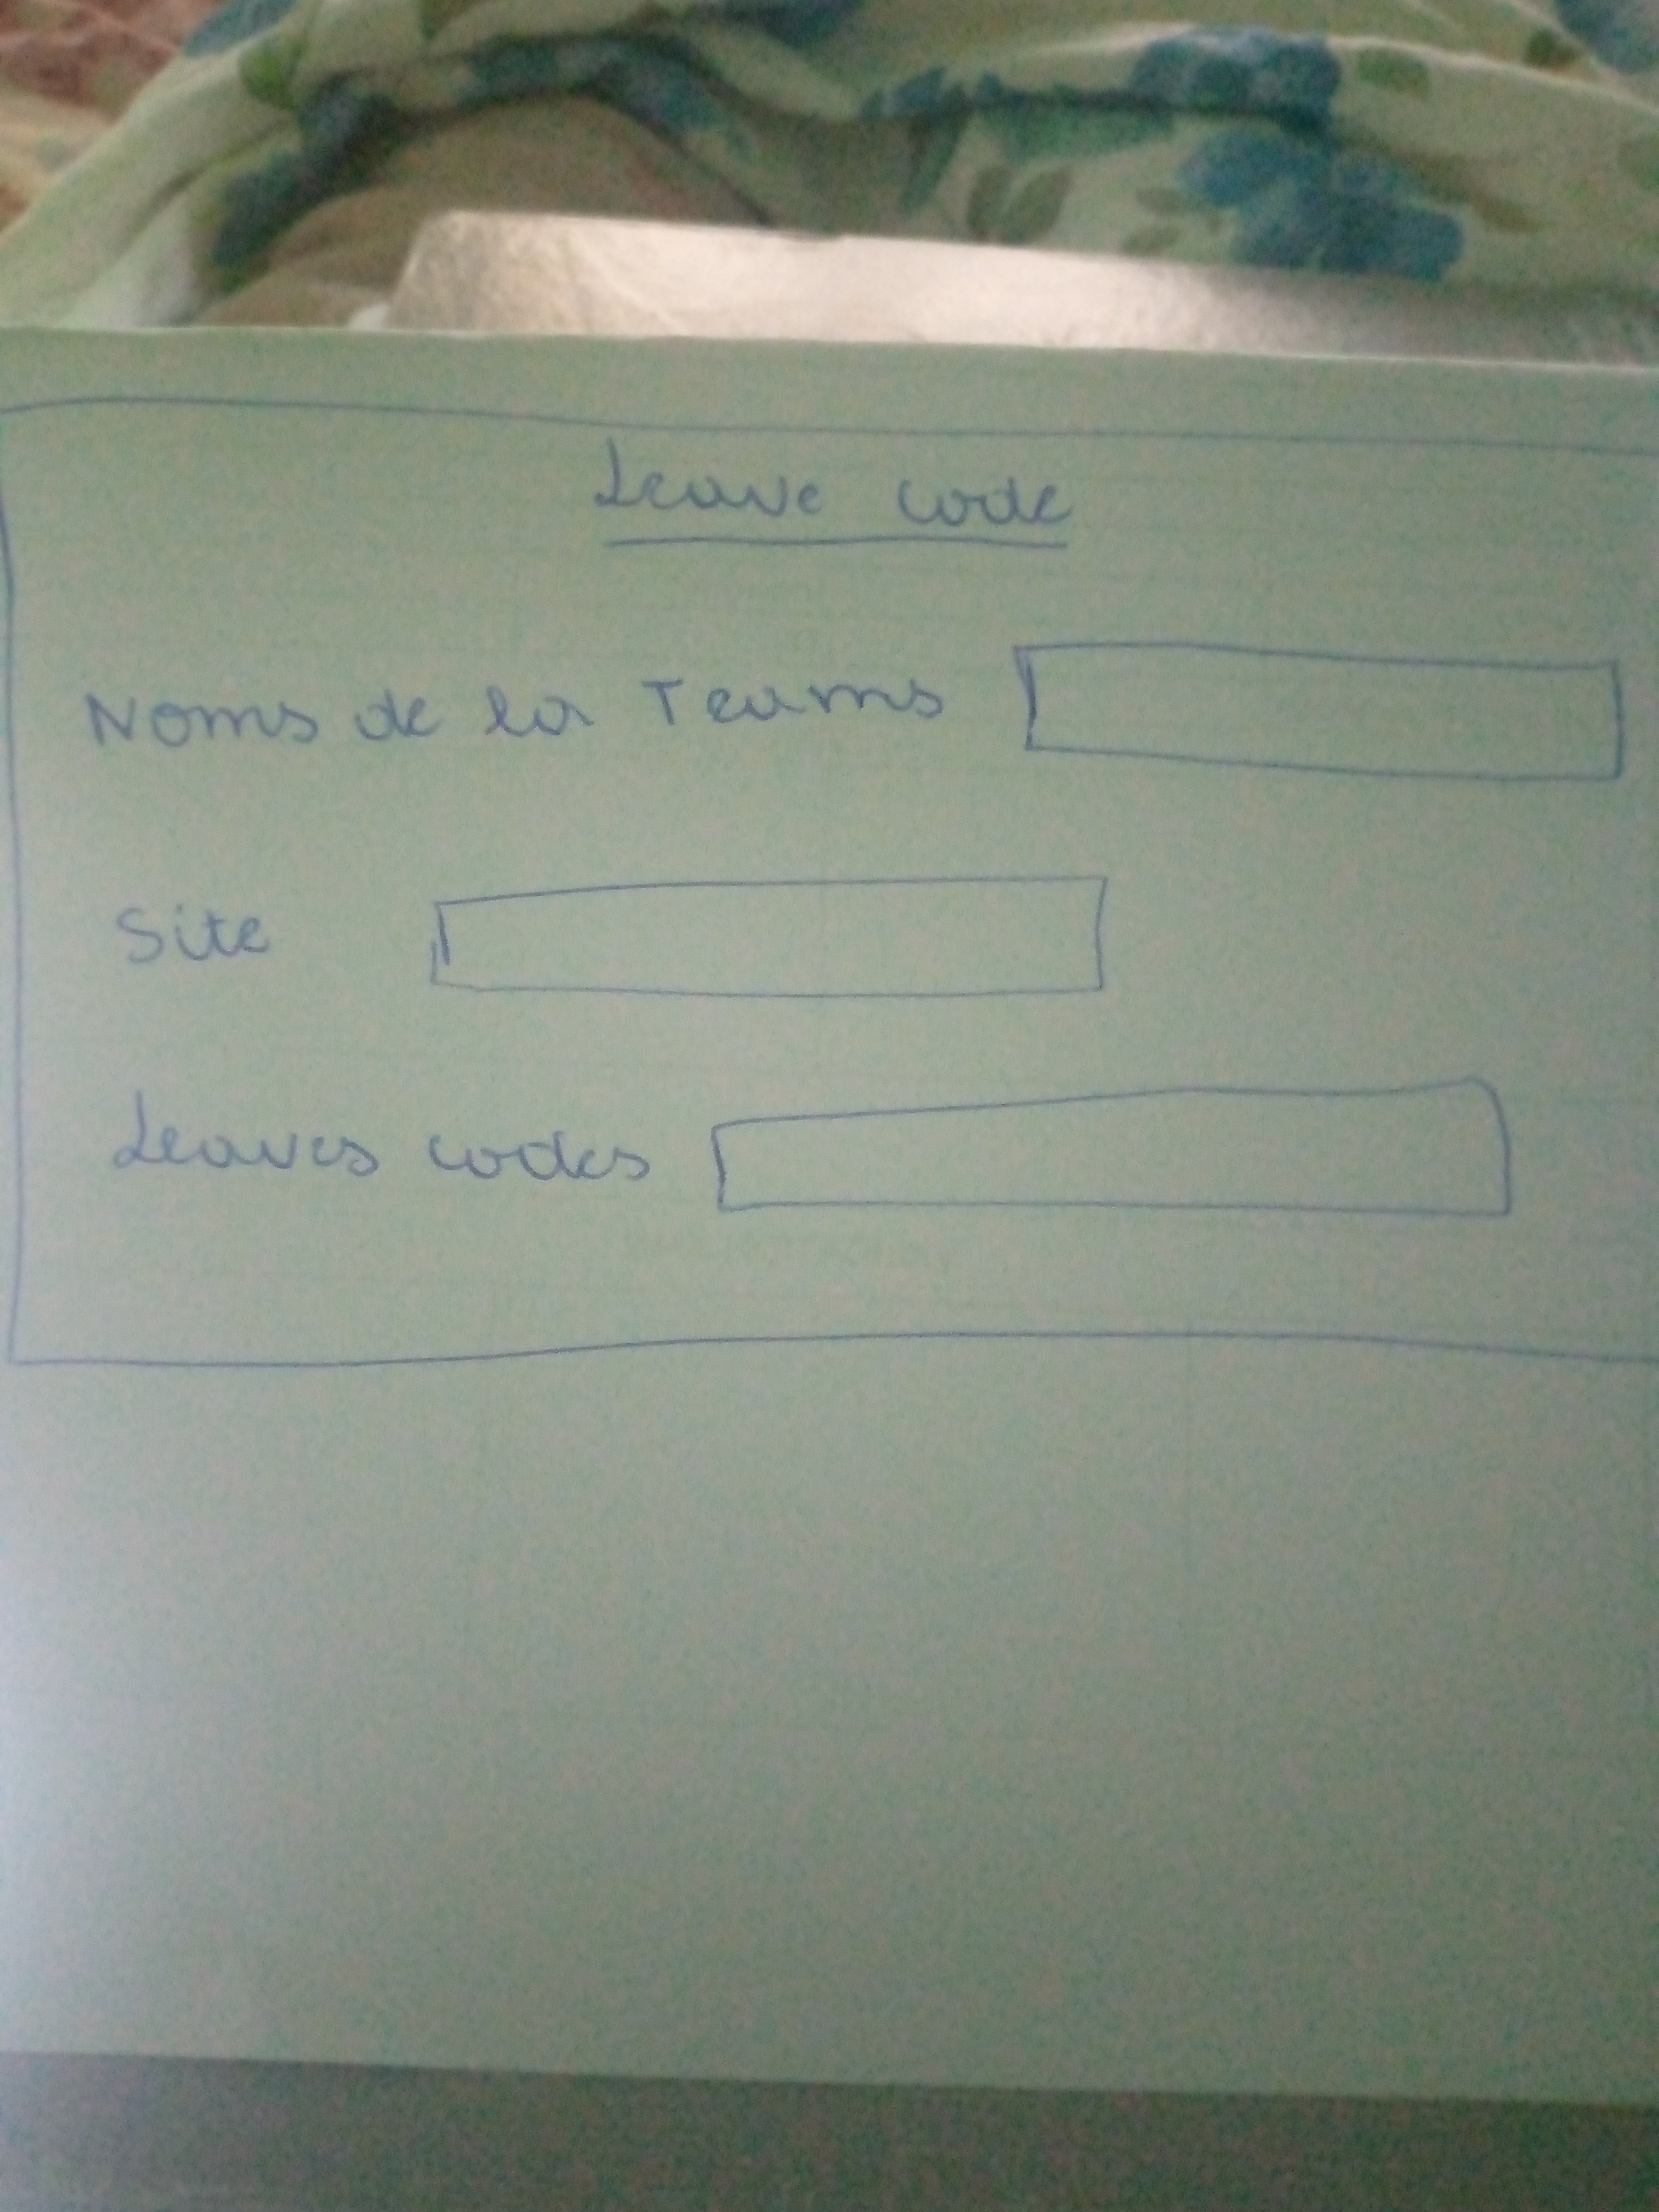 Leave code
Noms de la Teams
Site
Leaves codes